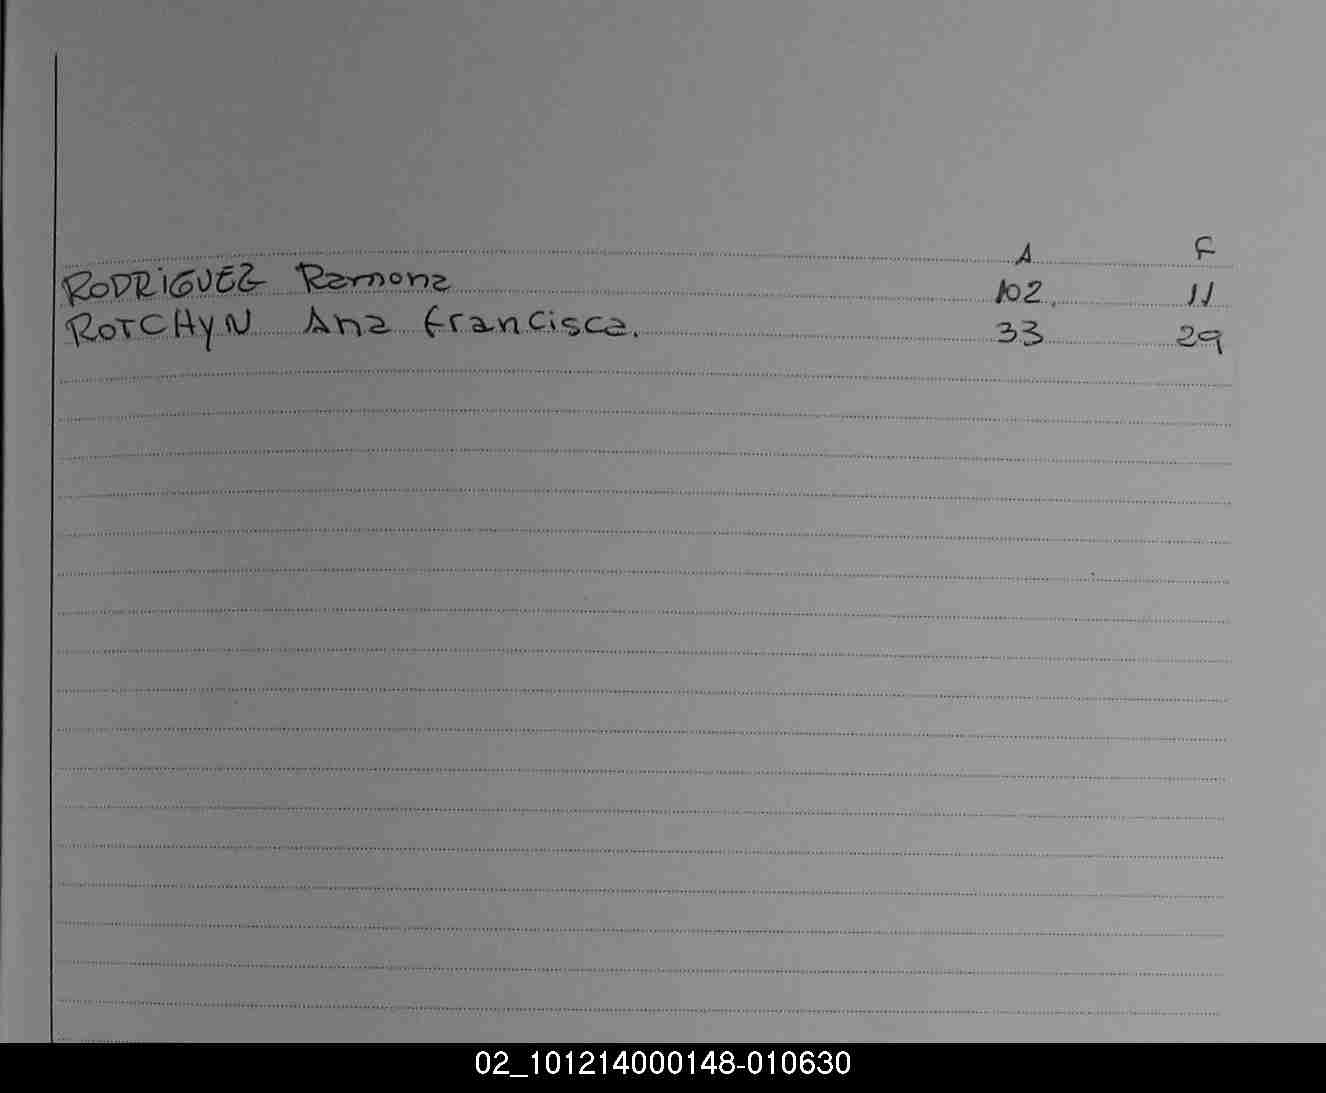 A F
RODRIGUEZ Ramona 102. 11
ROTCHYN Ana francisca. 33 29
02_101214000148-010630